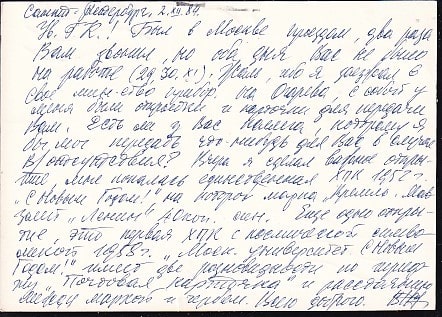 Санкт-Петербург, 2.XII.84
Ув. Г.К.! Был в Москве проездом, два раза
Вам звонил, но оба дня Вас не было
на работе (29, 30.XI). Жаль, ибо я заезжал в
свое мин-ство на Огарева, с собой у
меня были открытки и карточки для передачи
Вам. Есть ли у Вас коллега, которому я
бы мог передать что-нибудь для Вас в случае
В/отсутствия? Вчера я сделал важное откры-
тие, мне попалась единственная ХПК 1958 г.
"С Новым Годом!" на которой марка, Кремль, Мав-
золей "Ленин" 40коп. син. Еще одно откры-
тие это первая ХПК с космической симво-
ликой 1958 г. "Моск. университет С Новым
Годом!" имеет две разновидности по шрифту
"Почтовая карточка" и расстоянию
между маркой и гербом. Всего доброго.